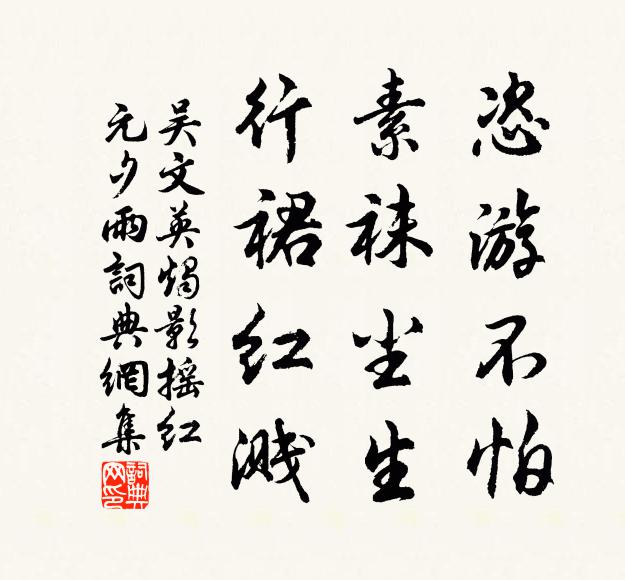 恣游不怕
素袜尘生
行裙红溅
吴文英燭影摇红
元夕雨詞典網集
詞典网印